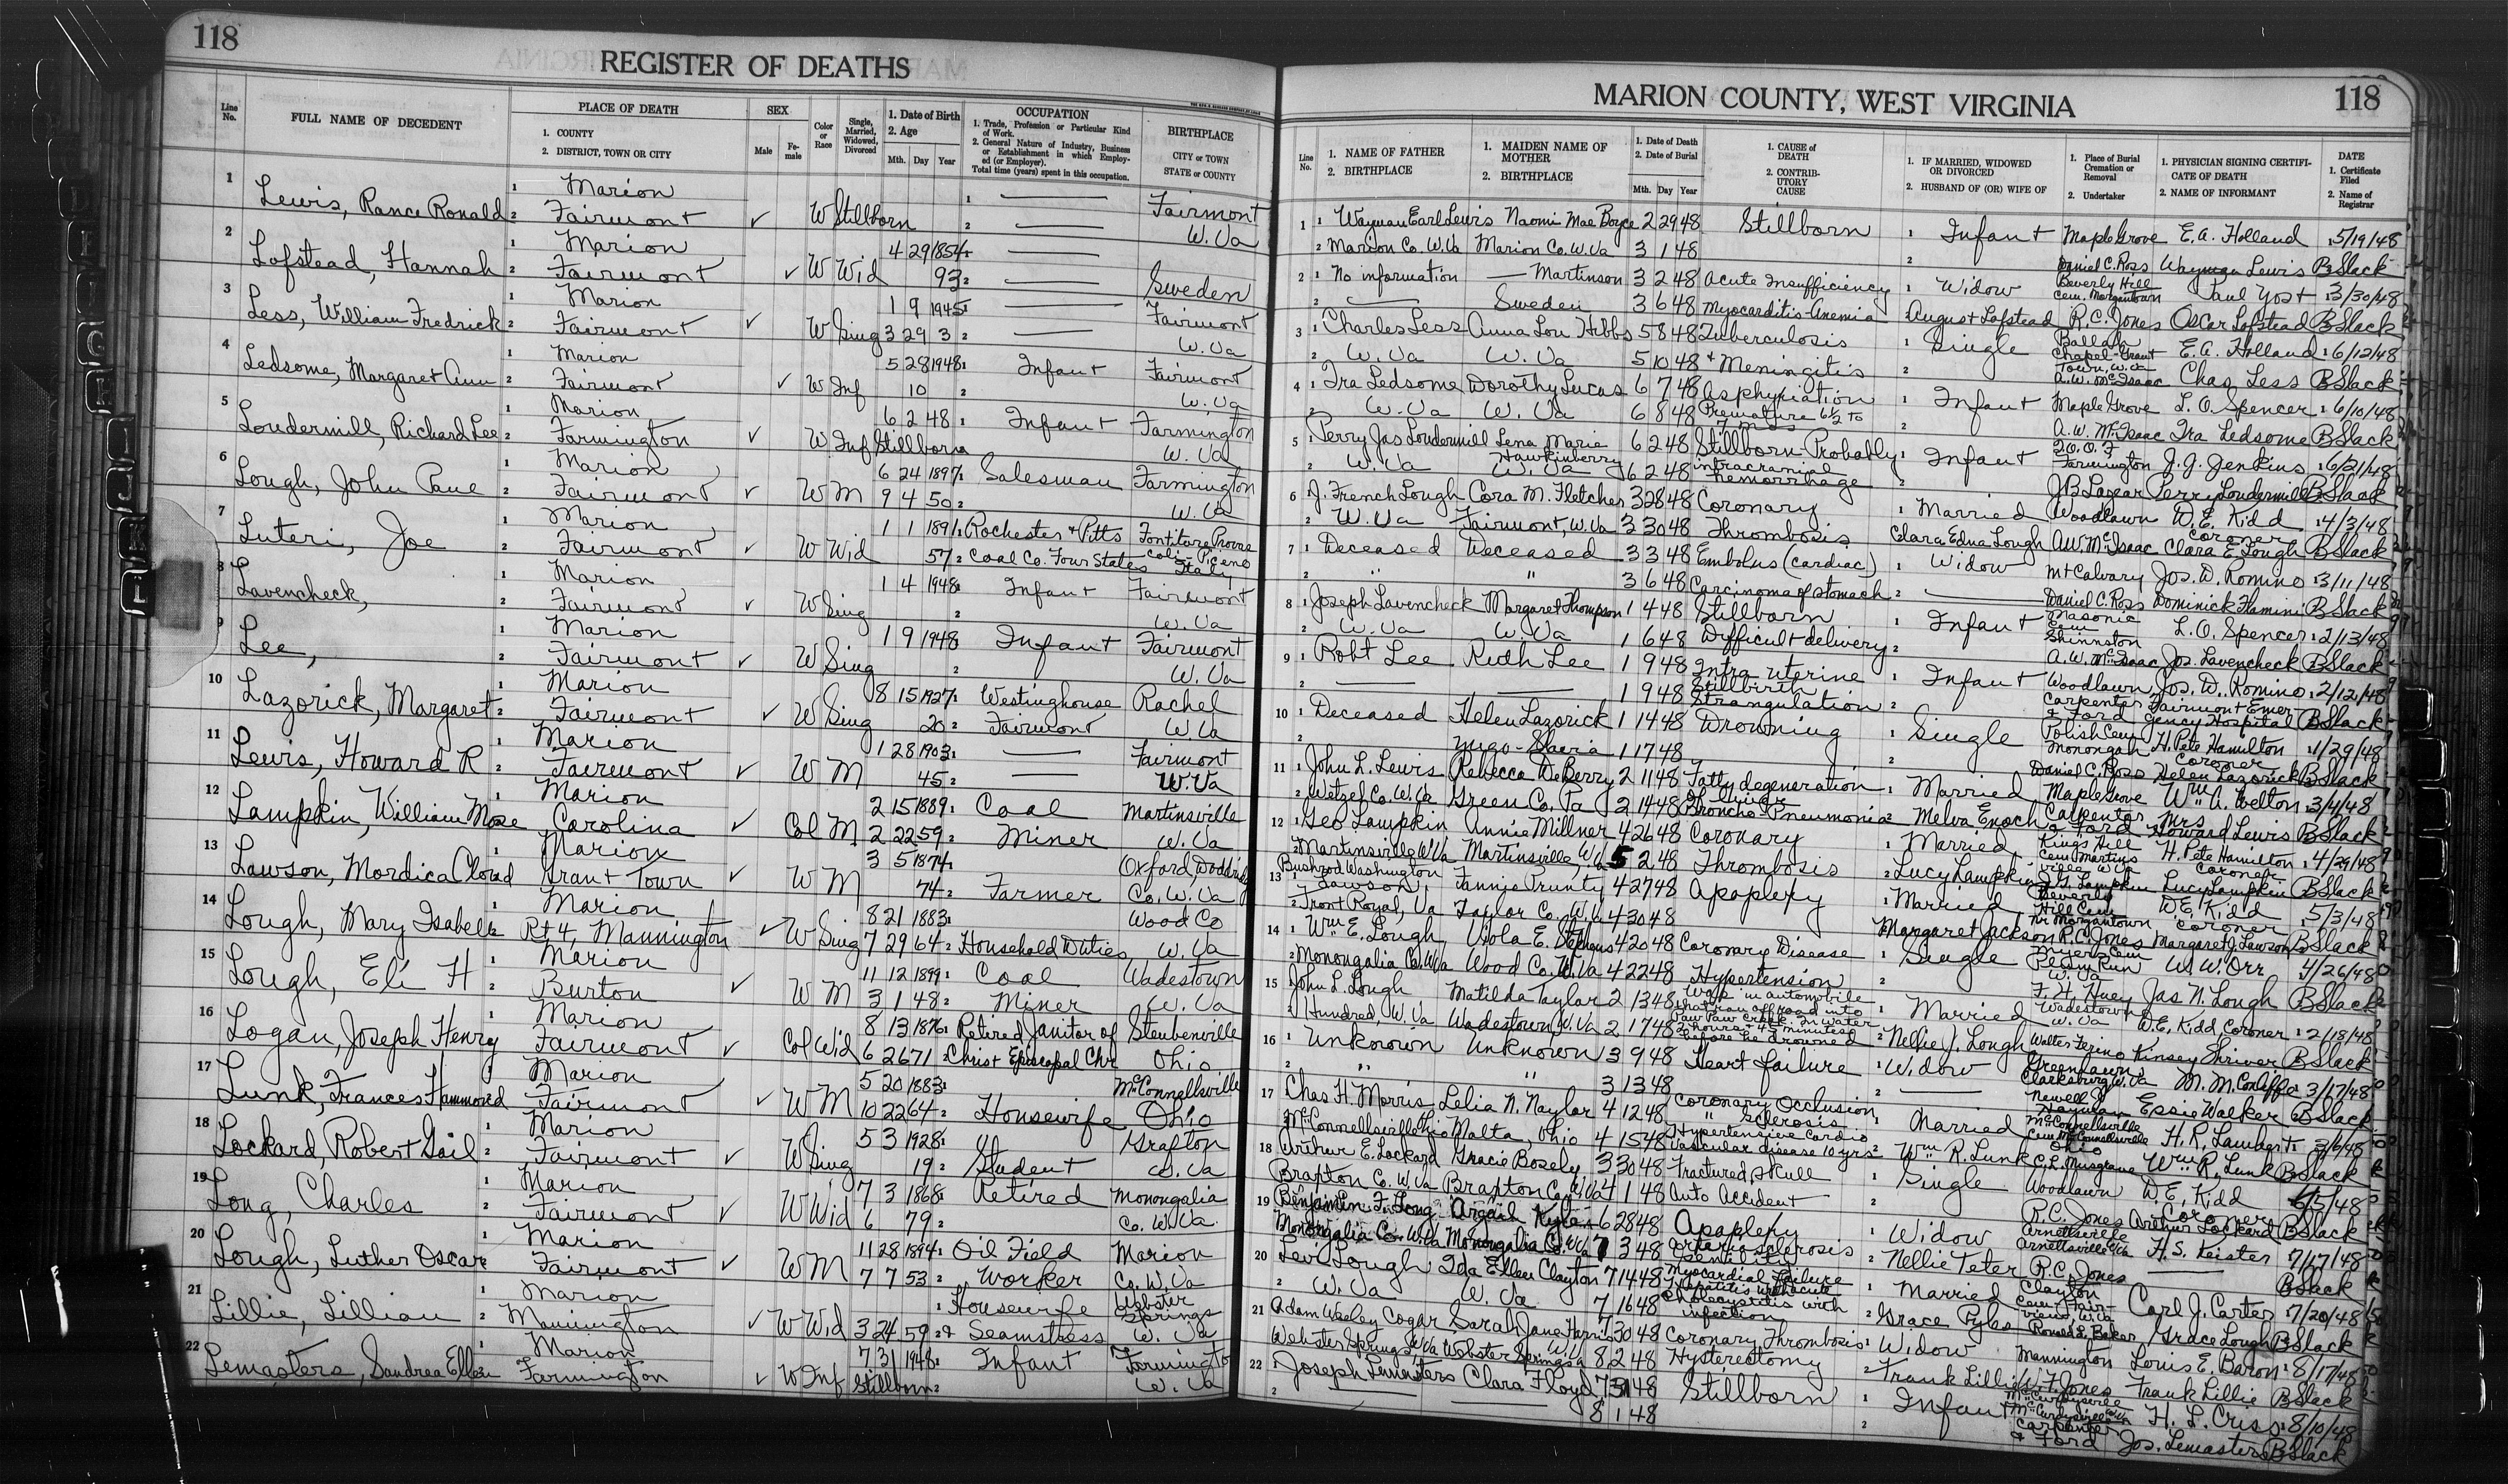 118
REGISTER OF DEATHS
Line No.
FULL NAME OF DECEDENT
PLACE OF DEATH
1. COUNTY
2. DISTRICT, TOWN OR CITY
SEX
Male
Female
Color or Race
Single, Married, Widowed, Divorced
1. Date of Birth
2. Age
Mth. Day Year
OCCUPATION
1. Trade, Profession or Particular Kind of Work.
2. General Nature of Industry, Business or Establishment in which Employed (or Employer).
Total time (years) spent in this occupation.
BIRTHPLACE
CITY or TOWN
STATE or COUNTY
1 Lewis, Rance Ronald 1 Marion 2 Fairmont ✓ W Stillborn 1 — 2 — Fairmont W. Va
2 Lofstead, Hannah 1 Marion 2 Fairmont ✓ W Wid 4 29 1854 93 1 — 2 — Sweden
3 Less, William Fredrick 1 Marion 2 Fairmont ✓ W Sing 1 9 1945 3 29 3 1 — 2 — Fairmont W. Va
4 Ledsome, Margaret Ann 1 Marion 2 Fairmont ✓ W Inf 5 28 1948 10 1 Infant 2 Fairmont W. Va
5 Loudermill, Richard Lee 1 Marion 2 Farmington ✓ W Inf 6 2 48 Stillborn 1 Infant Farmington W. Va
6 Lough, John Cane 1 Marion 2 Fairmont ✓ W M 6 24 1897 9 4 50 1 Salesman 2 Farmington W. Va
7 Luteri, Joe 1 Marion 2 Fairmont ✓ W Wid 1 1 1891 57 1 Rochester + Pitts 2 Coal Co. Four States Italy
8 Lavencheck, 1 Marion 2 Fairmont ✓ W Sing 1 4 1948 1 Infant 2 Fairmont W. Va
9 Lee, 1 Marion 2 Fairmont ✓ W Sing 1 9 1948 Infant 2 Fairmont W. Va
10 Lazorick, Margaret 1 Marion 2 Fairmont ✓ W Sing 8 15 1927 20 1 Westinghouse 2 Fairmont Rachel W. Va
11 Lewis, Howard R 1 Marion 2 Fairmont ✓ W M 1 28 1903 45 1 — 2 — Fairmont W. Va
12 Lampkin, William Mose 1 Marion 2 Carolina ✓ Col M 2 15 1889 2 22 59 1 Coal 2 Miner Martinsville W. Va
13 Lawson, Mordica Cloud 1 Marion Grant Town ✓ W M 3 5 1874 74 2 Farmer Oxford, Doddridge Co. W. Va
14 Lough, Mary Isabelle 1 Marion Rt 4, Mannington ✓ W Sing 8 21 1883 7 29 64 2 Household Duties Wood Co W. Va
15 Lough, Eli H 1 Marion 2 Burton ✓ W M 11 12 1899 3 1 48 1 Coal 2 Miner Wadestown W. Va
16 Logan, Joseph Henry 1 Marion 2 Fairmont ✓ Col Wid 8 13 1876 6 26 71 1 Retired Janitor of 2 Christ Episcopal Chr Steubenville Ohio
17 Lunk, Frances Hammond 1 Marion 2 Fairmont ✓ W M 5 20 1883 10 22 64 2 Housewife McConnellsville Ohio
18 Lockard, Robert Gail 1 Marion 2 Fairmont ✓ W Sing 5 3 1928 19 2 Student Grafton W. Va
19 Long, Charles 1 Marion 2 Fairmont ✓ W Wid 7 3 1868 6 79 1 Retired 2 Monongalia Co. W. Va.
20 Lough, Luther Oscar 1 Marion 2 Fairmont ✓ W M 11 28 1894 7 7 53 1 Oil Field 2 Worker Marion Co. W. Va
21 Lillie, Lillian 1 Marion 2 Mannington ✓ W Wid 3 24 59 1 Housewife 2 & Seamstress Webster Springs W. Va
22 Lemasters, Sandrea Ellen 1 Marion 2 Farmington ✓ W Inf 7 31 1948 Stillborn 1 Infant 2 Farmington W. Va
MARION COUNTY, WEST VIRGINIA
118
Line No.
1. NAME OF FATHER
2. BIRTHPLACE
1. MAIDEN NAME OF MOTHER
2. BIRTHPLACE
1. Date of Death
2. Date of Burial
Mth. Day Year
1. CAUSE OF DEATH
2. CONTRIBUTORY CAUSE
1. IF MARRIED, WIDOWED OR DIVORCED
2. HUSBAND OF (OR) WIFE OF
1. Place of Burial Cremation or Removal
2. Undertaker
1. PHYSICIAN SIGNING CERTIFICATE OF DEATH
2. NAME OF INFORMANT
DATE
1. Certificate Filed
2. Name of Registrar
1 1 Wayman Earl Lewis Naomi Mae Boyce 2 29 48 Stillborn 1 Infant Maple Grove E. A. Holland 5/19/48
2 Marion Co. W. Va Marion Co. W. Va 3 1 48 2 Daniel C. Ross Wayman Lewis B Slack
2 1 No information — Martinson 3 2 48 Acute Insufficiency 1 Widow Beverly Hill Cem. Morgantown Paul Yost 3/30/48
2 — Sweden 3 6 48 Myocarditis-Anemia 2 August Lofstead R. C. Jones Oscar Lofstead B Slack
3 1 Charles Less Anna Lou Hibbs 5 8 48 Tuberculosis 1 Single Chapel-Grant Town, W. Va E. A. Holland 1 6/12/48
2 W. Va W. Va 5 10 48 + Meningitis 2 A. W. McIsaac Chas Less B Slack
4 1 Ira Ledsome Dorothy Lucas 6 7 48 Asphyxiation 1 Infant Maple Grove L. O. Spencer 1 6/10/48
2 W. Va W. Va 6 8 48 Premature 6½ to 7 mos 2 A. W. McIsaac Ira Ledsome B Slack
5 1 Perry Jas Loudermill Lena Marie Hawkinberry 6 2 48 Stillborn-Probably 1 Infant I. O. O. F Farmington J. J. Jenkins 1 6/21/48
2 W. Va W. Va 6 2 48 intracranial hemorrhage 2 J B Lazear Perry Loudermill B Slack
6 1 J. French Lough Cora M. Fletcher 3 28 48 Coronary 1 Married Woodlawn D. E. Kidd Coroner 1 4/3/48
2 W. Va Fairmont, W. Va 3 30 48 Thrombosis Clara Edna Lough A. W. McIsaac Clara E. Lough B Slack
7 1 Deceased Deceased 3 3 48 Embolus (cardiac) 1 Widow Mt Calvary Jos. D. Romino 3/11/48
2 " " 3 6 48 Carcinoma of stomach 2 — Daniel C. Ross Dominick Flamini B Slack
8 1 Joseph Lavencheck Margaret Thompson 1 4 48 Stillborn 1 Infant Masonic Cem Shinnston L. O. Spencer 2/13/48
2 W. Va W. Va 1 6 48 Difficult delivery 2 A. W. McIsaac Jos. Lavencheck B Slack
9 1 Robt Lee Ruth Lee 1 9 48 Intra uterine Stillbirth 1 Infant Woodlawn Jos. D. Romino 2/12/48
2 — — 1 9 48 Strangulation 2 Carpenter & Ford Fairmont Emergency Hospital B Slack
10 1 Deceased Helen Lazorick 1 14 48 Drowning 1 Single Polish Cem Monongah H. Pete Hamilton Coroner 1/29/48
2 Yugo-Slavia 1 17 48 2 Daniel C. Ross Helen Lazorick B Slack
11 1 John L. Lewis Rebecca DeBerry 2 11 48 Fatty degeneration of liver 1 Married Maple Grove Wm A. Welton 3/4/48
2 Wetzel Co. W. Va Green Co. Pa 2 14 48 Broncho-Pneumonia 2 Melva Enoch Carpenter & Ford Mrs Howard Lewis B Slack
12 1 Geo Lampkin Annie Millner 4 26 48 Coronary 1 Married Kings Hill Cem Martinsville W. Va H. Pete Hamilton Coroner 1 4/29/48
2 Martinsville W. Va Martinsville, W. Va 5 2 48 Thrombosis 2 Lucy Lampkin J. G. Lampkin Lucy Lampkin B Slack
13 1 Bushrod Washington Lawson Fannie Prunty 4 27 48 Apoplexy 1 Married Beverly Hill Cem nr Morgantown D. E. Kidd Coroner 5/3/48
2 Front Royal, Va Taylor Co. W. Va 4 30 48 Margaret Jackson R. C. Jones Margaret J. Lawson B Slack
14 1 Wm E. Lough Viola E. Stephens 4 20 48 Coronary Disease 1 Single Myers Cem Plum Run W. Va W. W. Orr 4/26/48
2 Monongalia Co. W. Va Wood Co. W. Va 4 22 48 Hypertension 2 F. H. Huey Jas N. Lough B Slack
15 1 John L. Lough Matilda Taylor 2 13 48 Was in automobile that ran off road into Paw Paw Creek. In water 1 Married Wadestown W. Va D. E. Kidd Coroner 2/18/48
2 Hundred, W. Va Wadestown, W. Va 2 17 48 2 hours & 45 minutes before he drowned 2 Nellie J. Lough Walter Kinsey Shriver B Slack
16 1 Unknown Unknown 3 9 48 Heart failure 1 Widow Greenlawn Clarksburg W. Va 3/17/48
2 " " 3 13 48 2 — Newell J. Essie Walker B Slack
17 1 Chas H. Morris Lelia N. Naylor 4 12 48 Coronary Occlusion " Sclerosis 1 Married McConnellsville Cem McConnellsville Ohio H. R. Lambert
McConnellsville Ohio Malta, Ohio 4 15 48 Hypertensive Cardio Vascular disease 10 yrs 2 Wm R. Lunk C. L. Musgrave Wm R. Lunk B Slack
18 Arthur E. Lockard Gracie Bosely 3 30 48 Fractured Skull 1 Single Woodlawn D. E. Kidd Coroner
Braxton Co. W. Va Braxton Co. W. Va 4 1 48 Auto Accident 2 R. C. Jones Arthur Lockard B Slack
19 Benjamin F. Long Kyle 6 28 48 Apoplexy 1 Widow Arnettsville Arnettsville W. Va H. S. Keister 7/17/48
Monongalia Co. W. Va Monongalia Co. W. Va 7 3 48 Arteriosclerosis Senility 2 Nellie Teter R. C. Jones — B Slack
20 1 Levi Lough Ida Ellen Clayton 7 14 48 Myocardial Failure 1 Married Clayton Cem. Fairview, W. Va Carl J. Carter 7/20/48
2 W. Va W. Va 7 16 48 Hepatitis with acute cholecystitis with infection 2 Grace Pyles Ronald L. Baker Grace Lough B Slack
21 Adam Wesley Cogar Sarah Jane Harris 7 30 48 Coronary Thrombosis 1 Widow Mannington Louis E. Baron 8/17/48
Webster Springs, W. Va Webster Springs W. Va 8 2 48 Hysterectomy 2 Frank Lillie W. F. Jones Frank Lillie B Slack
22 1 Joseph Lemasters Clara Floyd 7 31 48 Stillborn 1 Infant McCurdysville McCurdysville W. Va H. L. Crisp 8/10/48
2 — — 8 1 48 2 Carpenter & Ford Jos. Lemasters B Slack